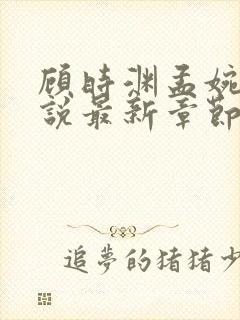 顾时渊孟婉
说最新章節
追夢的猪猪少